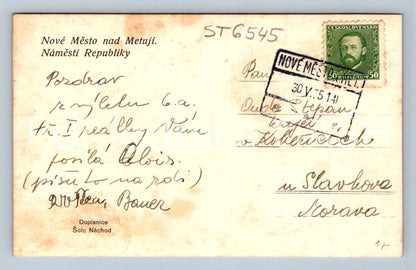 ST6545
Nové Město nad Metují.
Náměstí Republiky
ČESKOSLOVENSKO
50 50
NOVÉ MĚSTO
30 V 35 14
Pozdrav
z výletu 6. a.
tř. I reálky Vám
posílá Alois.
(píšu to na zdi)
Bauer
Pan
Štěpan
v
u Slavkova
Morava
Dopisnice
Šolc Náchod